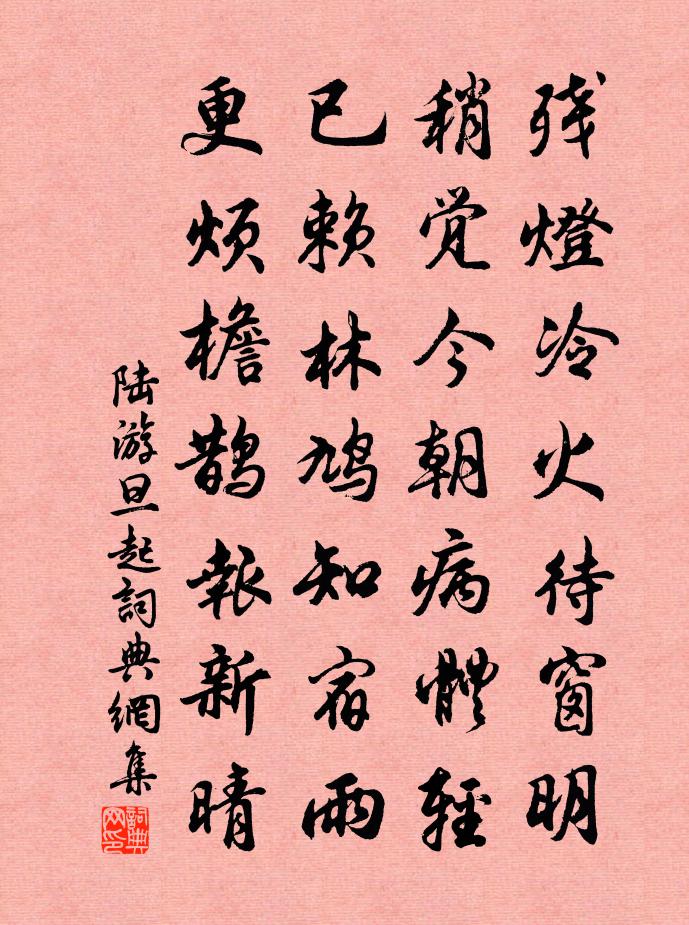 残燈冷火待窗明
稍覚今朝病體輕
已赖林鸠知宿雨
更烦檐鹊報新晴
陆游旦起詞典網集
詞典网印